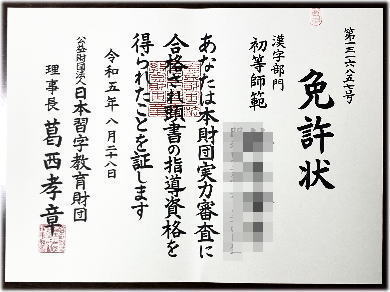 免許状
第一三一六八五七号
漢字部門
初等師範
あなたは本財団実力審査に
合格され頭書の指導資格を
得られたことを証します
令和五年八月二十八日
公益財団法人日本習字教育財団
理事長葛西孝章